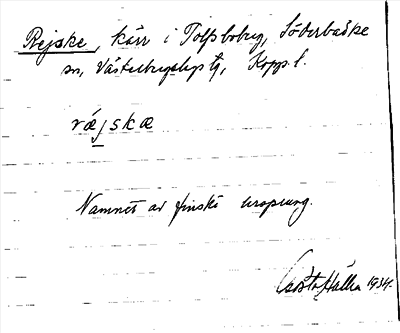 Rejske, kärr i Tolfsbobyg, Söderbarke
sn, Västerbergslags tg, Kopps. l.
räjskæ
Namnet av finskt ursprung.
1934.